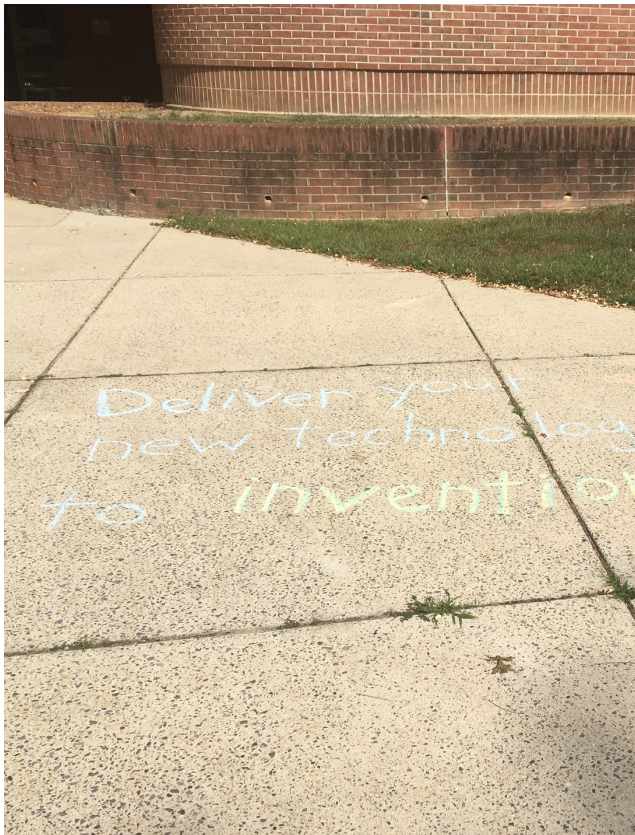 Deliver your
new technolog
to invention